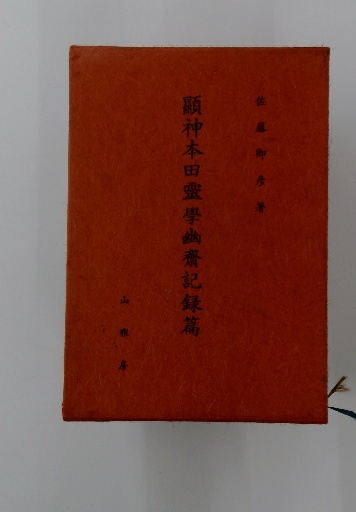 佐藤卿彦著
顯神本田靈學幽齋記録篇
山雅房